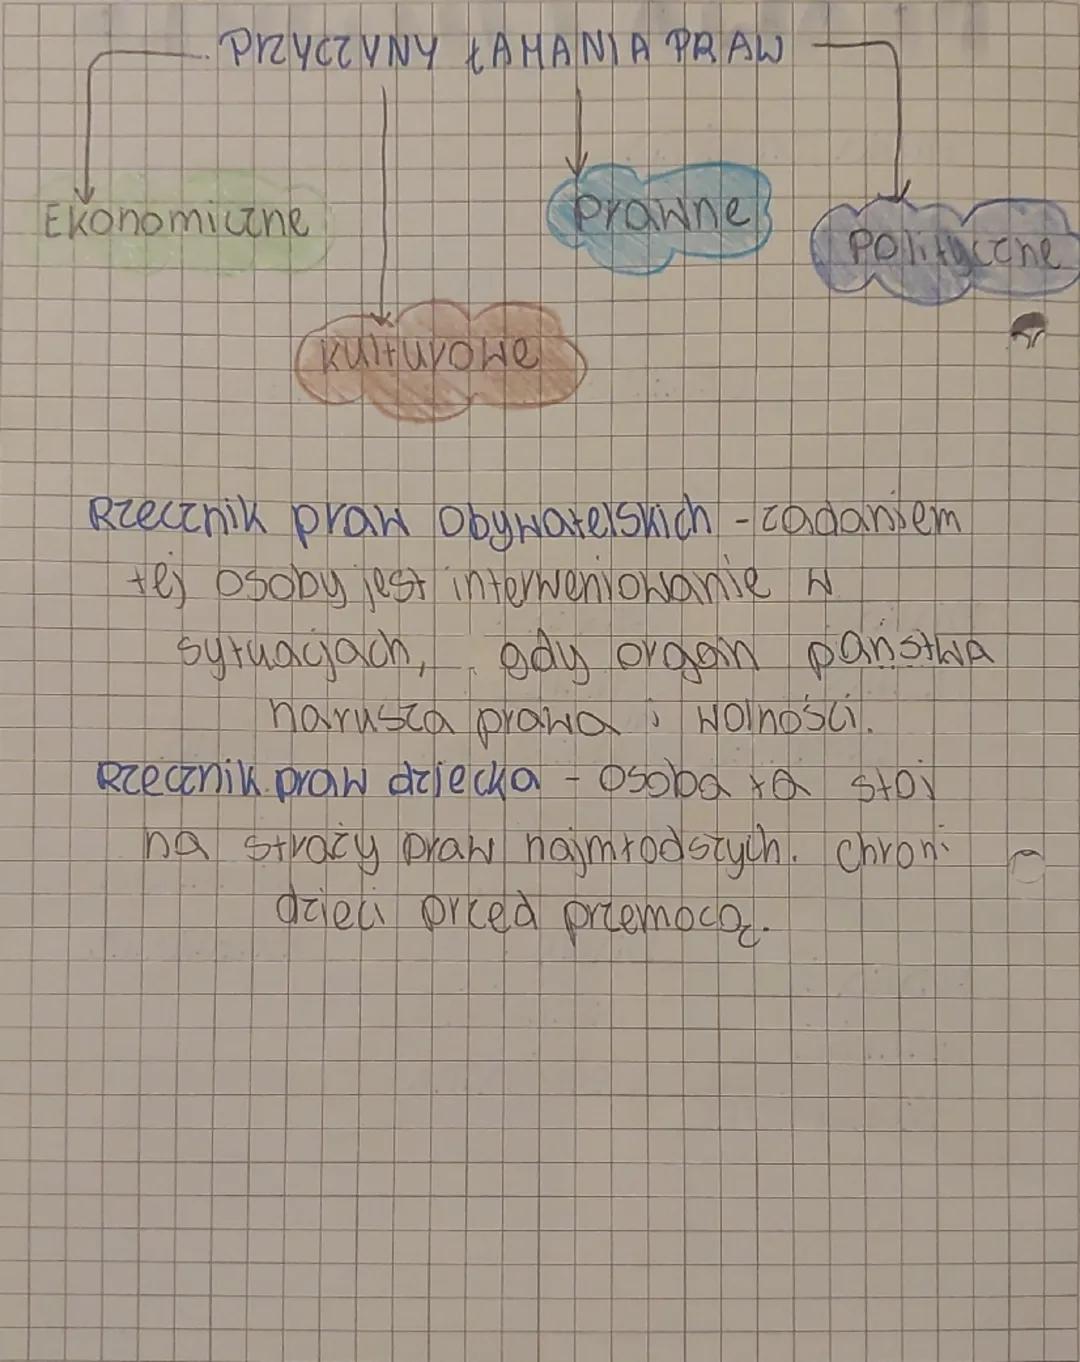 PRZYCZYNY ŁAMANIA PRAW
Ekonomiczne
Prawne
Polityczne
Kulturowe
Rzecznik praw obywatelskich - zadaniem
tej osoby jest interweniowanie w
sytuacjach, gdy organ państwa
narusza prawa i wolności.
Rzecznik praw dziecka - osoba ta stoi
na straży praw najmłodszych. Chroni
dzieci przed przemocą.